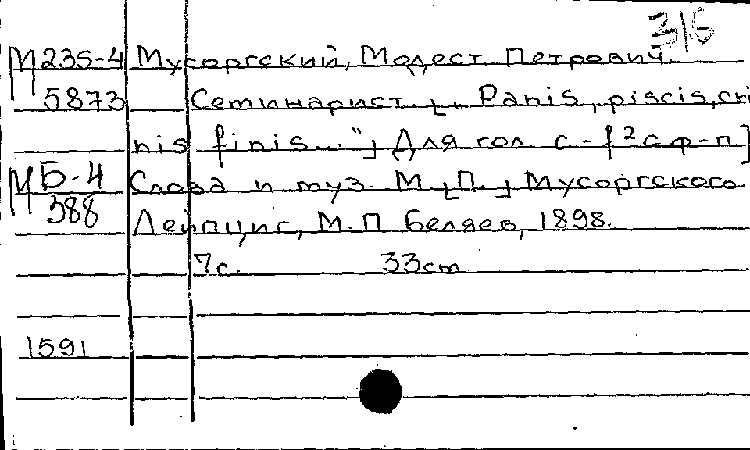 3/5
М 235-4 Мусоргский, Модест Петрович.
5873 Семинарист [„Panis, piscis, cri
nis finis..."] Для гол. с-[²с ф-п]
М Б-4 Слова и муз. М[.П.] Мусоргского
388 Лейпциг, М.П. Беляев, 1898.
7с. 33cm
1591